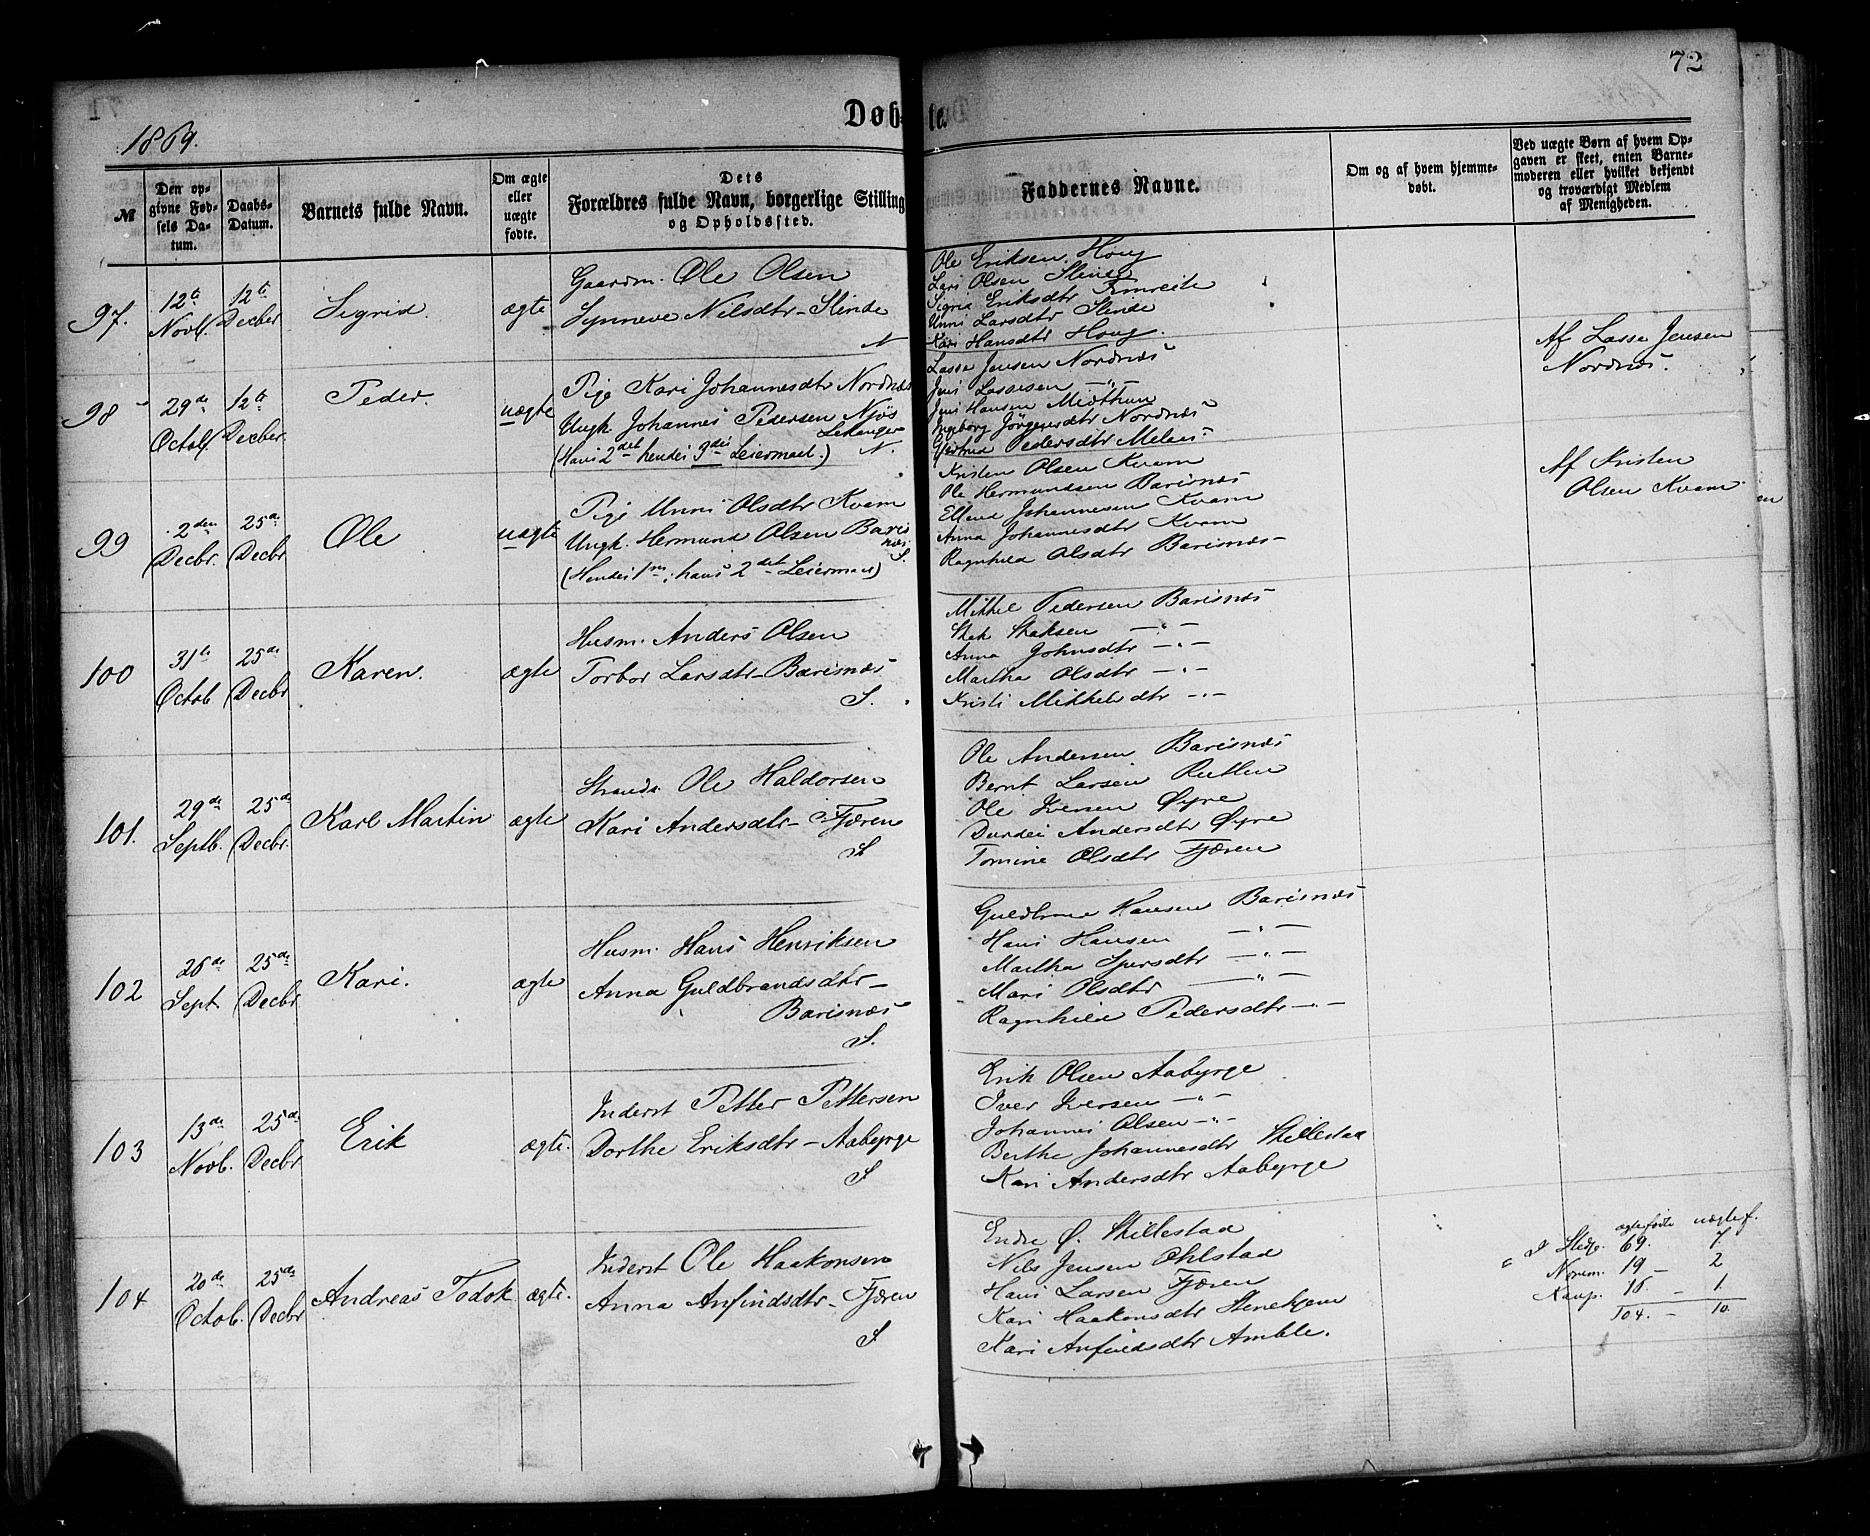 72
Døbte.
1869.
№
Den opgivne Fødsels Datum.
Daabs-Datum.
Barnets fulde Navn.
Om ægte eller uægte fødte.
Dets Forældres fulde Navn, borgerlige Stilling og Opholdssted.
Faddernes Navne.
Om og af hvem hjemmedøbt.
Ved uægte Børn af hvem Opgaven er skeet, enten Barnemoderen eller hvilket bekjendt og troværdigt Medlem af Menigheden.
97. 12te Novb. 12te Decber Sigrid. ægte
Gaardm. Ole Olsen
Synneve Nilsdtr - Slinde
N
Ole Eriksen Houg
Lars Olsen Slinde
Sigrid Eriksdtr Fimreite
Unni Larsdtr Slinde
Kari Hansdtr Houg.
98 29de Octob. 12te Decber Peder. uægte
Pige Kari Johannesdtr Nordnæs
Ungk. Johannes Pedersen Njøs
Leikanger
(Hans 2det hendes 3die Leiermaal.) N.
Lasse Jensen Nordnæs
Jens Lassesen —"—
Jens Hansen Midthun
Ingeborg Jørgensdtr Nordnæs
Gjertrud Pedersdtr Melen
Af Lasse Jensen
Nordnæs.
99 2den Decbr. 25de Decbr Ole uægte
Pige Unni Olsdtr Kvam
Ungk. Hermund Olsen Barsnæs
S.
(Hendes 1ste, hans 2det Leiermaal)
Kristen Olsen Kvam
Ole Hermundsen Barsnæs
Ellend Johannesen Kvam
Anna Johannesdtr Kvam
Ragnhild Olsdtr Barsnæs
Af Kristen
Olsen Kvam
100 31te Octob. 25de Decbr Karen. ægte
Husm. Anders Olsen
Torbor Larsdtr - Barsnæs
S.
Mikkel Pedersen Barsnæs
Stak Staksen —"—
Anna Johnsdtr —"—
Martha Olsdtr —"—
Kristi Mikkelsdtr —"—
101. 29de Septb. 25de Decbr. Karl Martin ægte
Strands. Ole Haldorsen
Kari Andersdtr - Fjæren
S
Ole Andersen Barsnæs
Bernt Larsen Rutlin
Ole Iversen Øyre
Durdei Andersdtr Øyre
Tomine Olsdtr Fjæren
102 26de Sept. 25de Decbr Kari. ægte
Husm. Hans Henriksen
Anna Guldbrandsdtr -
Barsnæs
S.
Guldbrand Hansen Barsnæs
Hans Hansen —"—
Martha Spersdtr —"—
Mari Olsdtr —"—
Ragnhild Pedersdtr —"—
103 13de Novb. 25de Decbr Erik ægte.
Inderst Petter Pettersen
Dorthe Eriksdtr - Aabyrge
S
Erik Olsen Aabyrge
Iver Iversen —"—
Johannes Olsen —"—
Berthe Johannesdtr Skillestad
Kari Andersdtr Aabyrge
104 20de Octob. 25de Decbr Andreas Todok ægte.
Inderst Ole Haakonsen
Anna Anfindsdtr - Fjæren
S
Endre Ø. Skillestad
Nils Jensen Ølstad
Hans Larsen Fjæren
Kari Haakonsdtr Stenehjem
Kari Anfindsdtr Amble.
ægtefødte uægtef.
I Stedje. 69. 7.
Norum. 19 — 2
Kaup. 16. — 1
104. — 10.